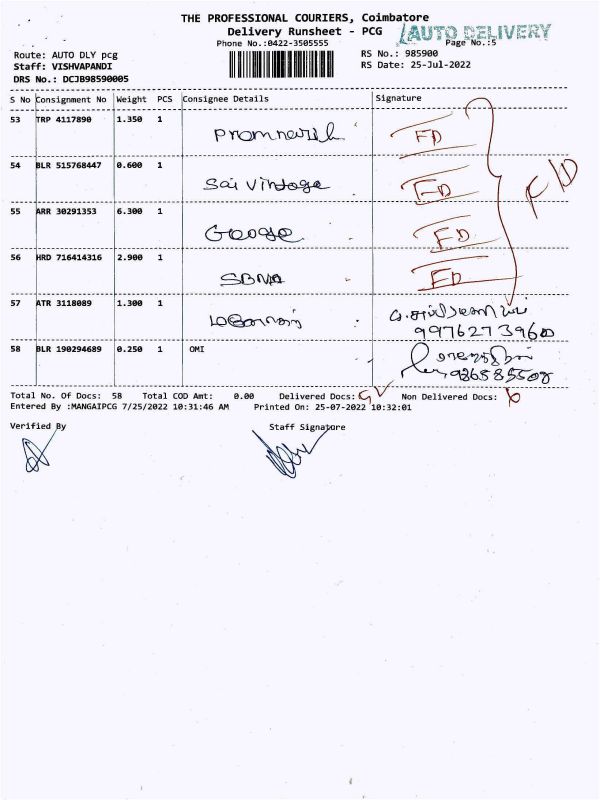 THE PROFESSIONAL COURIERS, Coimbatore
Delivery Runsheet - PCG
AUTO DELIVERY
Phone No.:0422-3505555
Page No.:5
Route: AUTO DLY pcg
RS No.: 985900
Staff: VISHVAPANDI
RS Date: 25-Jul-2022
DRS No.: DCJB98590005
S No Consignment No Weight PCS Consignee Details Signature
53 TRP 4117890 1.350 1 FD
54 BLR 515768447 0.600 1 Sai Vintage FD
55 ARR 30291353 6.300 1 George FD
56 HRD 716414316 2.900 1 SBNA FD
57 ATR 3118089 1.300 1
9976273960
58 BLR 190294689 0.250 1 OMI
Total No. Of Docs: 58 Total COD Amt: 0.00 Delivered Docs: Non Delivered Docs:
Entered By :MANGAIPCG 7/25/2022 10:31:46 AM Printed On: 25-07-2022 10:32:01
Verified By Staff Signature